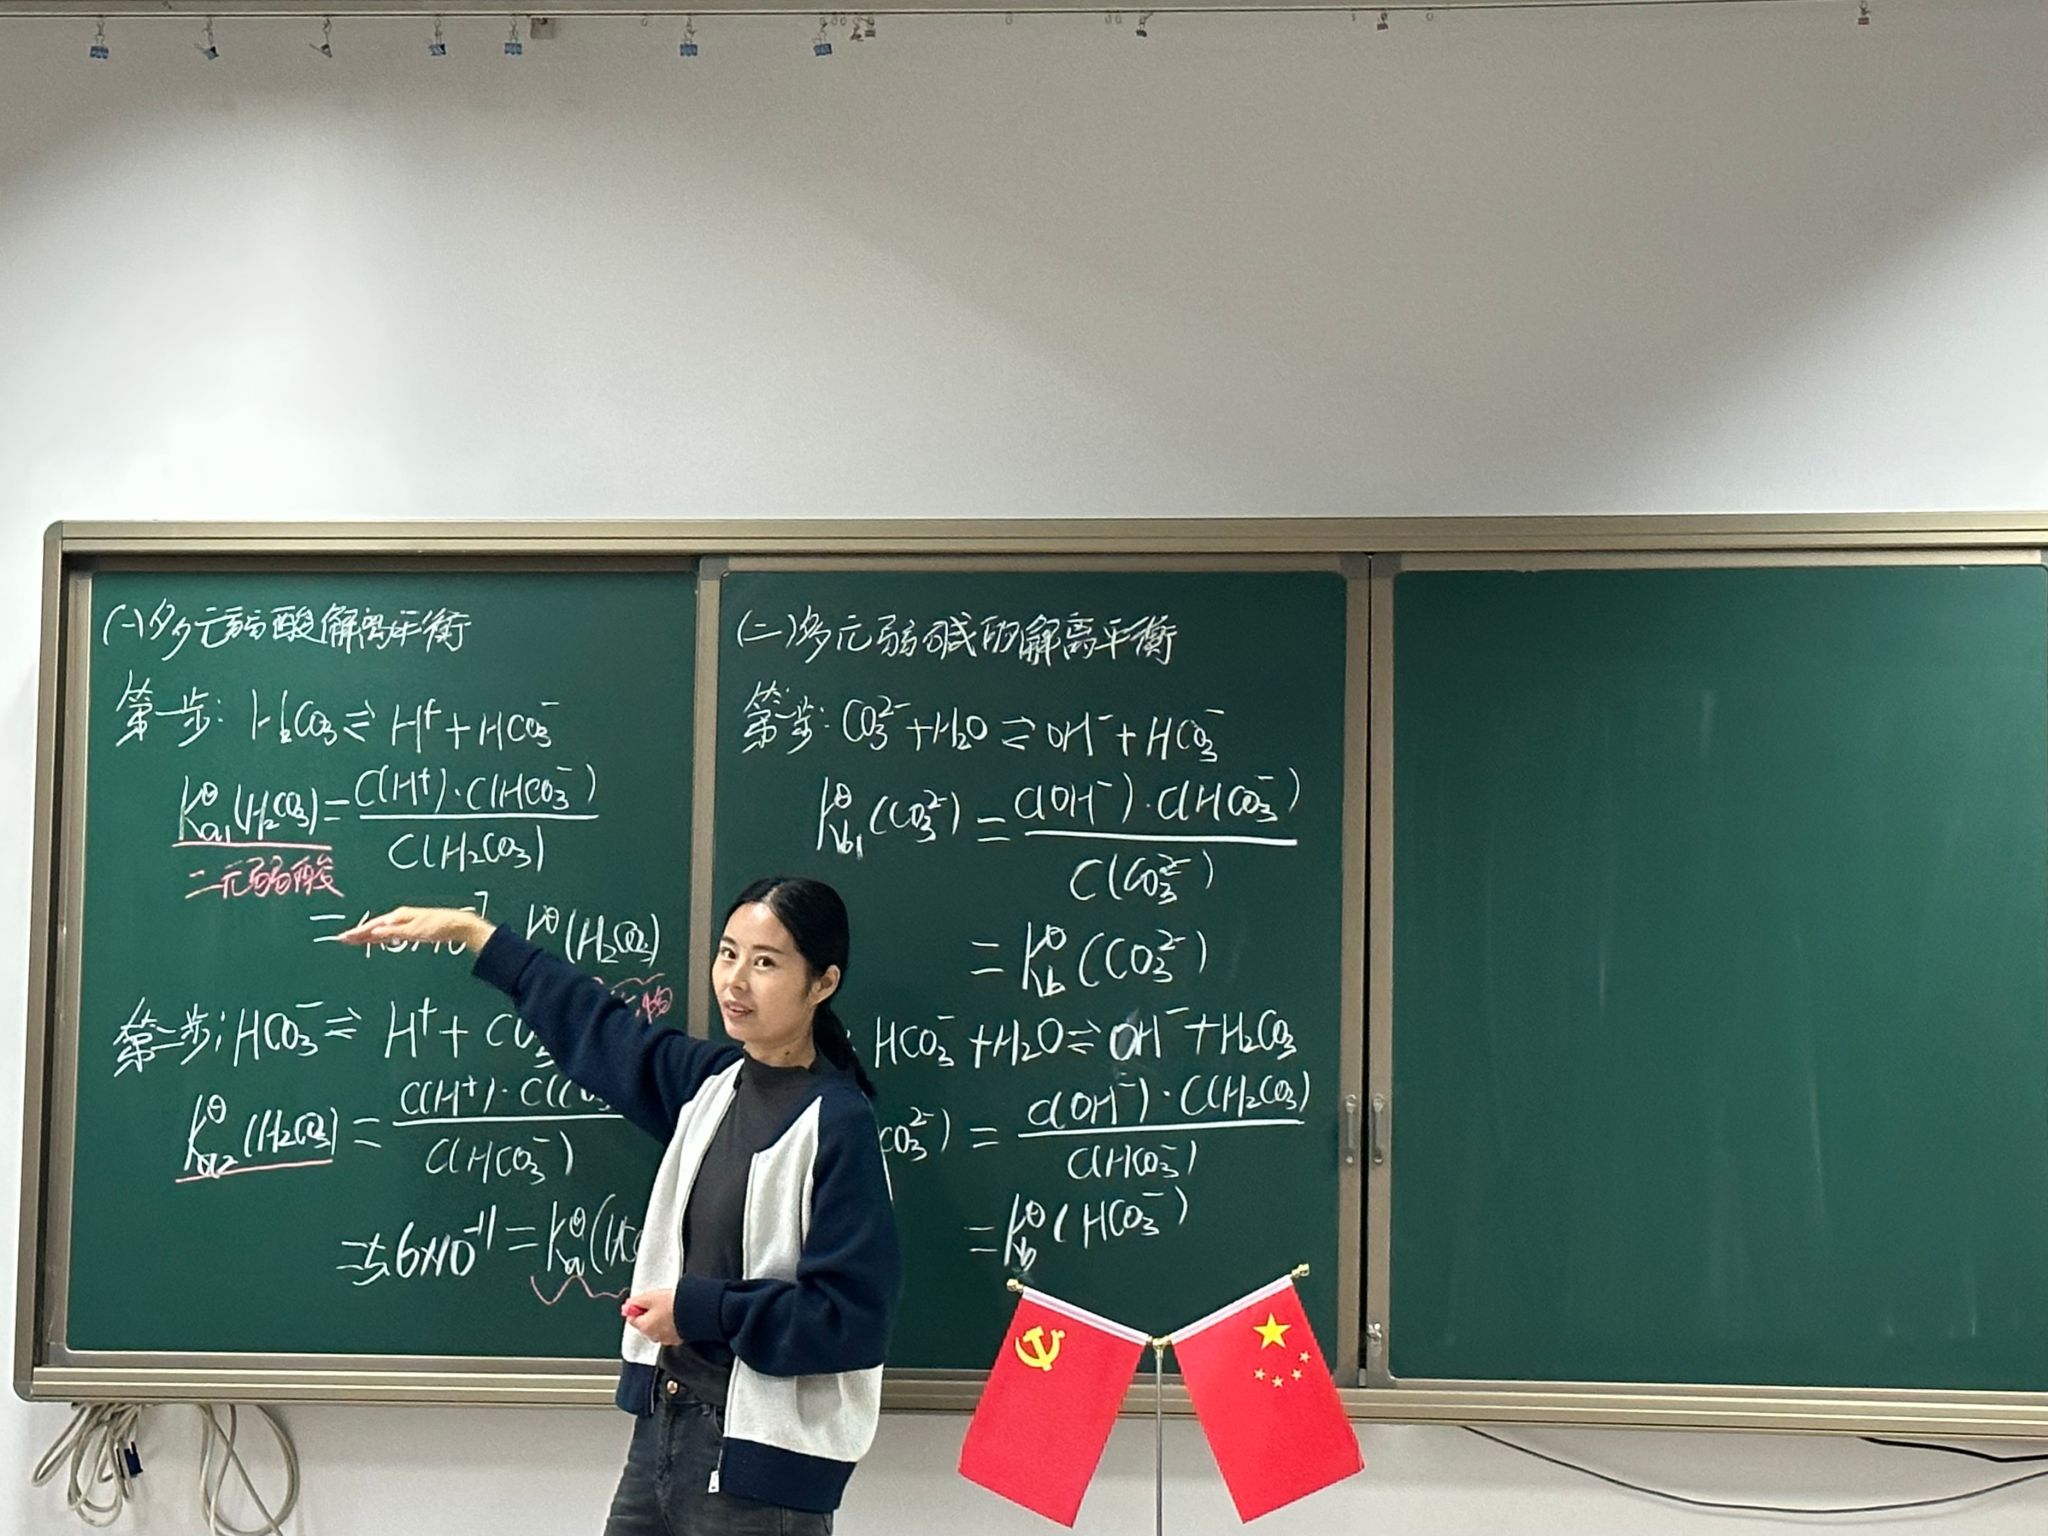 (一)多元弱酸解离平衡
第一步: H₂CO₃ ⇌ H⁺ + HCO₃⁻
Kᶿa₁(H₂CO₃) = C(H⁺)·C(HCO₃⁻) / C(H₂CO₃)
二元弱酸
= Kᶿ(H₂CO₃)
物
第二步: HCO₃⁻ ⇌ H⁺ + CO₃
Kᶿa₂(H₂CO₃) = C(H⁺)·C(CO₃ / C(HCO₃⁻)
= 5.6×10⁻¹¹ = Kᶿa(HCO
(二)多元弱碱的解离平衡
第一步: CO₃²⁻ + H₂O ⇌ OH⁻ + HCO₃⁻
Kᶿb₁(CO₃²⁻) = C(OH⁻)·C(HCO₃⁻) / C(CO₃²⁻)
= Kᶿb(CO₃²⁻)
: HCO₃⁻ + H₂O ⇌ OH⁻ + H₂CO₃
CO₃²⁻) = C(OH⁻)·C(H₂CO₃) / C(HCO₃⁻)
= Kᶿb(HCO₃⁻)